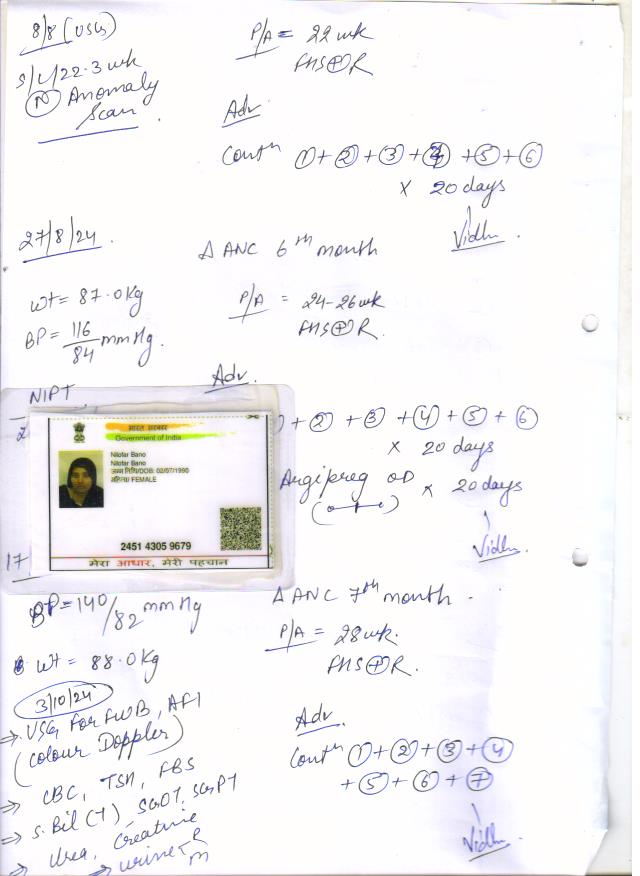 8/8 (USG)
S/L/22.3 wk
(N) Anomaly
Scan
P/A = 22 wk
FHS⊕R
Adv
Contn ① + ② + ③ + ④ + ⑤ + ⑥
× 20 days
Vidhu.
27/8/24.
Δ ANC 6th month
Wt = 87.0 Kg
BP = 116/84 mmHg.
P/A = 24-26 wk
FHS⊕R.
NIPT
Adv.
+ ② + ③ + ④ + ⑤ + ⑥
× 20 days
Argipreg OD × 20 days
Vidhu.
भारत सरकार
Government of India
Nilofar Bano
Nilofar Bano
जन्म तिथि/DOB: 02/07/1990
महिला/ FEMALE
2451 4305 9679
मेरा आधार, मेरी पहचान
17
BP = 140/82 mmHg
Wt = 88.0 Kg
Δ ANC 7th month.
P/A = 28 wk.
FHS⊕R.
3/10/24
⇒ USG For FWB, AFI
(Colour Doppler)
⇒ CBC, TSH, FBS
⇒ S. Bil (T), SGOT, SGPT
⇒ Urea, Creatinine
⇒ Urine R/M
Adv.
Contn ① + ② + ③ + ④
+ ⑤ + ⑥ + ⑦
Vidhu.